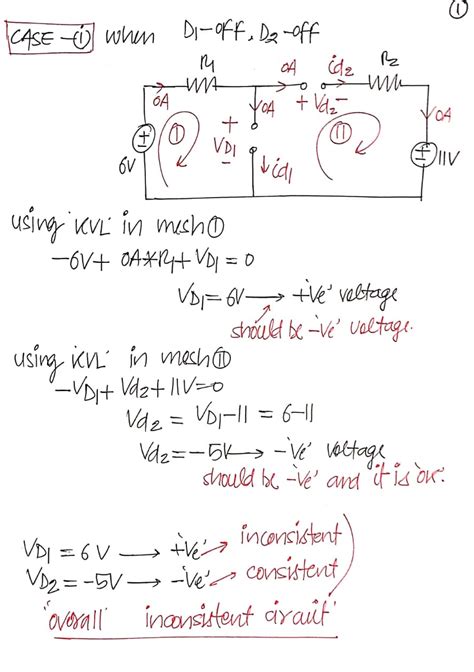 ①
CASE-(i) when D1-OFF, D2-OFF
R1 0A id2 R2
0A 0A + Vd2 - 0A
6V + VD1 - I id1 II 11V
using 'KVL' in mesh①
-6V + 0A*R1 + VD1 = 0
VD1 = 6V → +'Ve' voltage
should be -'ve' voltage.
using 'KVL' in mesh②
-VD1 + Vd2 + 11V = 0
Vd2 = VD1-11 = 6-11
Vd2 = -5V → -'Ve' voltage
should be -'ve' and it is ok.
VD1 = 6V → +'Ve' → inconsistent
VD2 = -5V → -'Ve' → consistent
"overall inconsistent circuit"